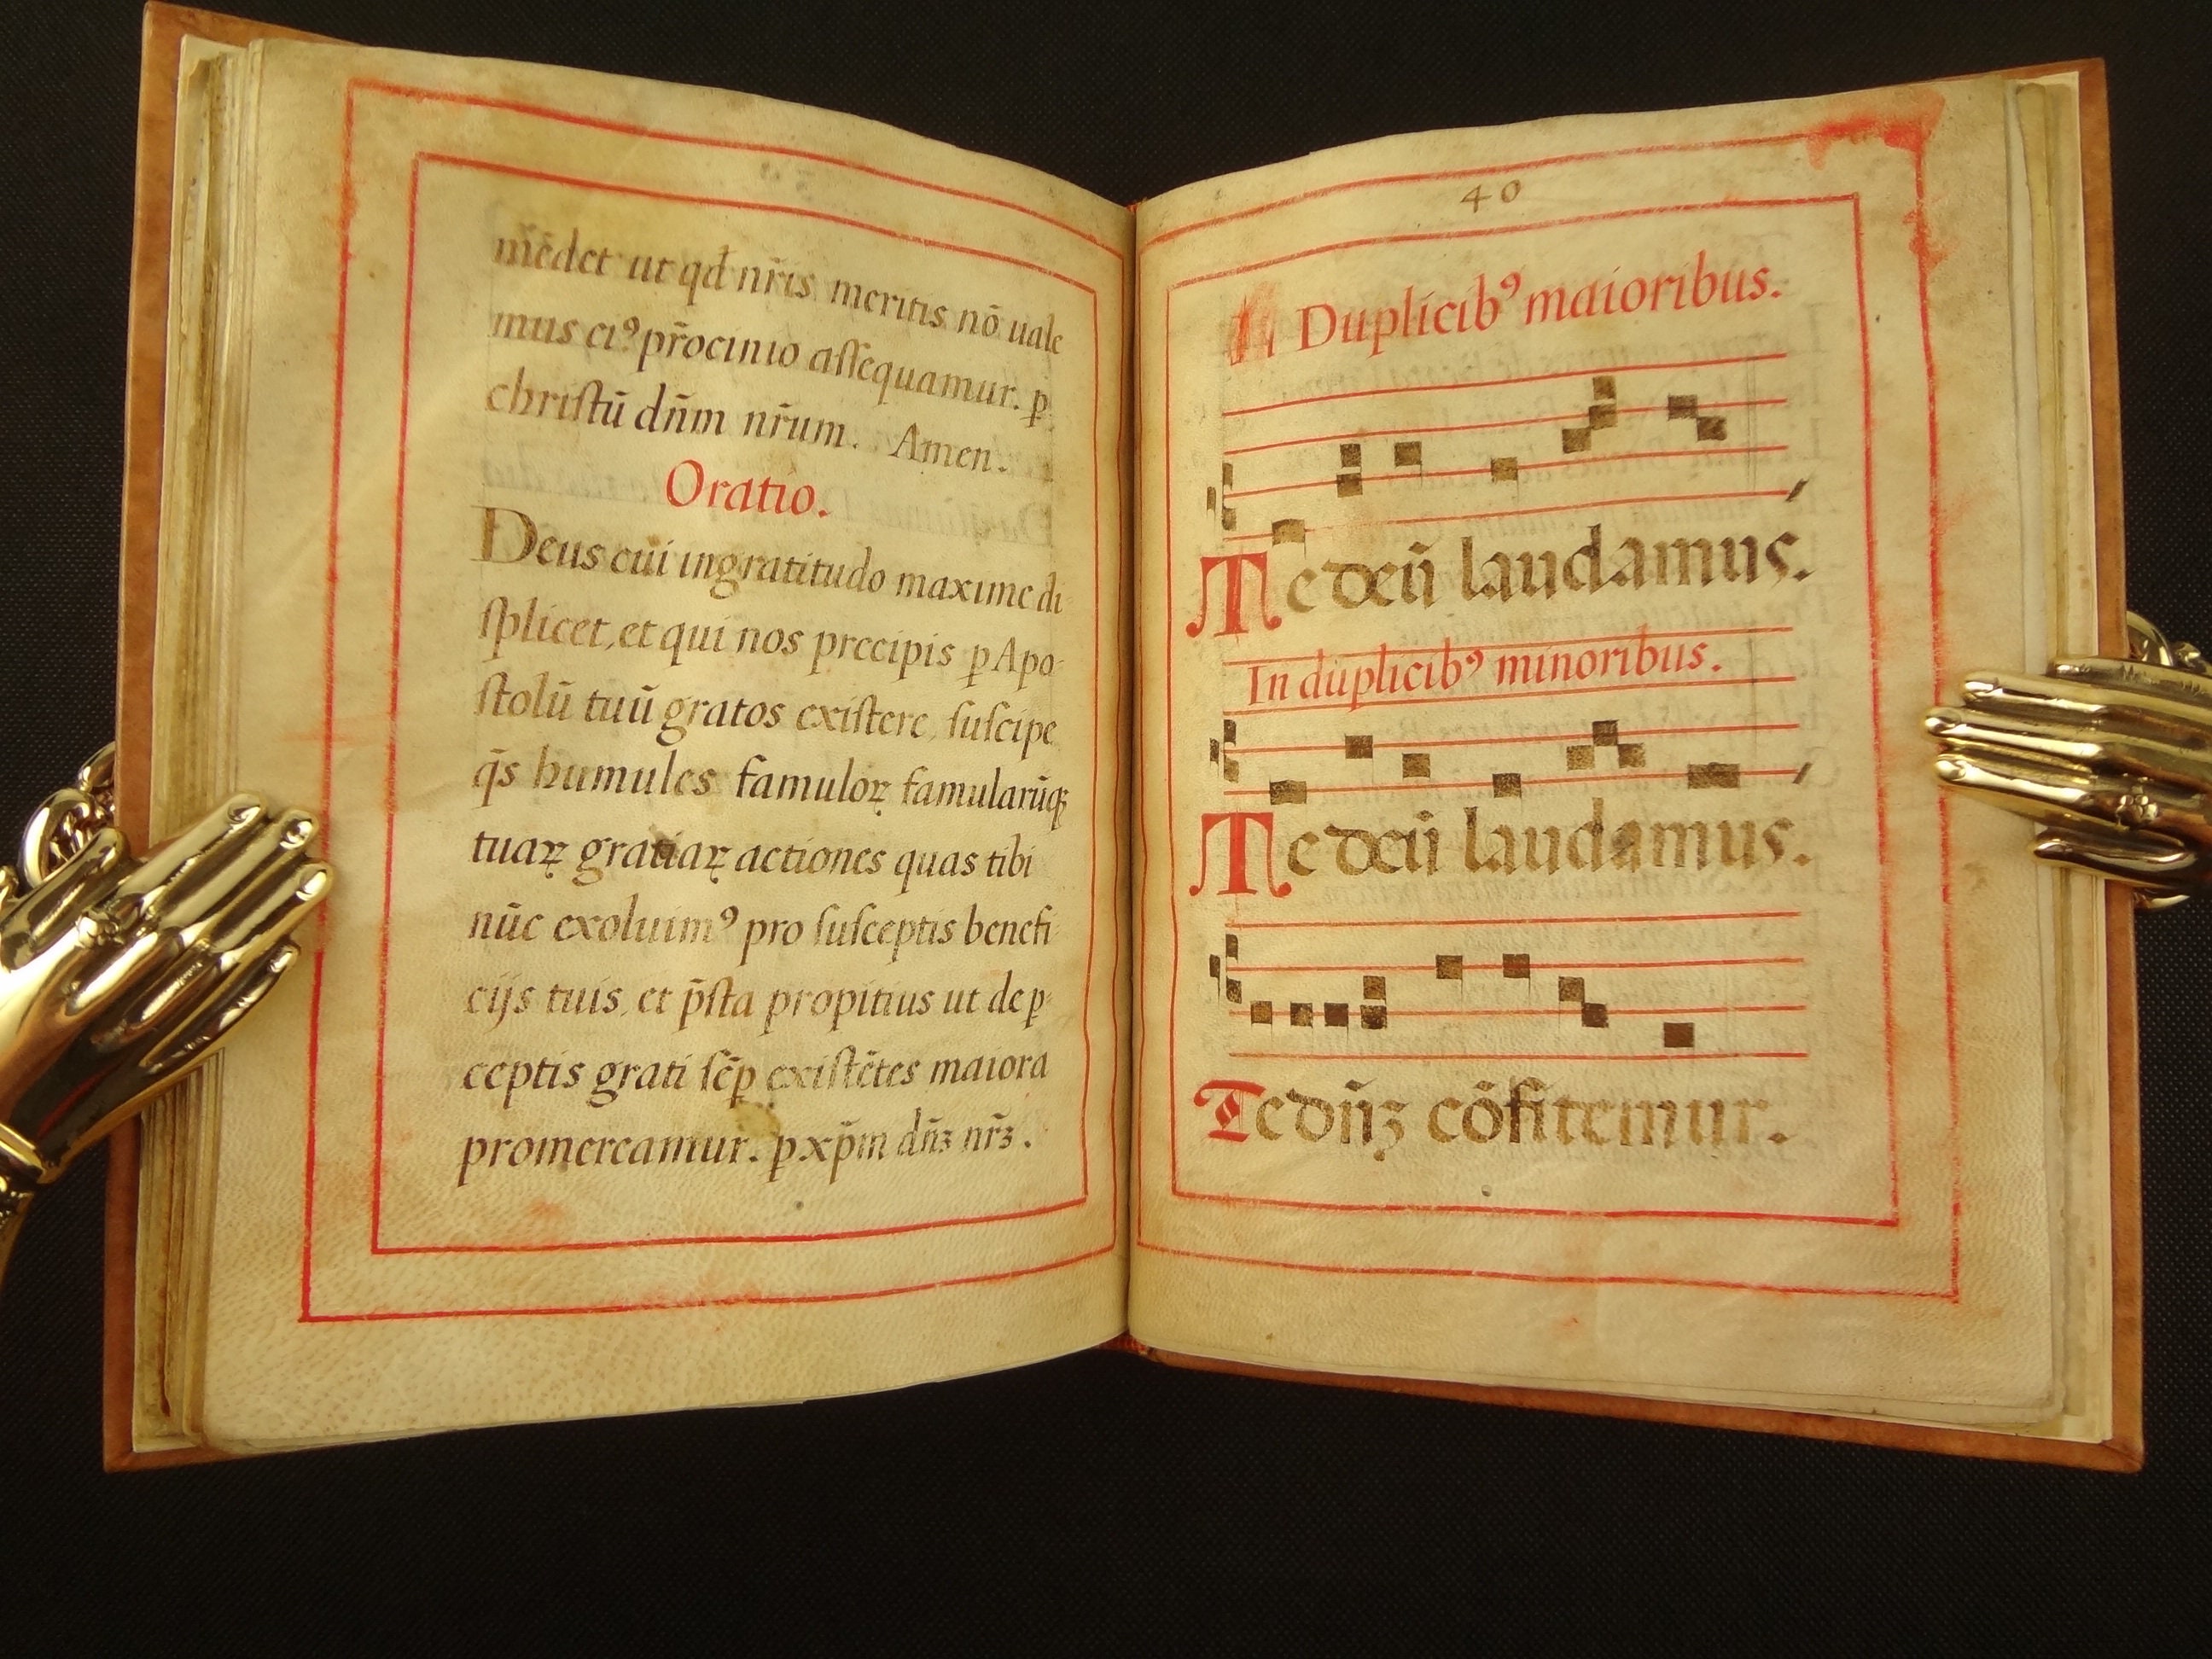 m̄ēdet ut qđ nr̄is meritis nō uale
mus eiꝰ pr̄ocinio aſſequamur. ꝑ
chriſtū dn̄m nr̄um. Amen.
Oratio.
Deus cui ingratitudo maxime di
ſplicet, et qui nos precipis ꝑ Apo-
ſtolū tuū gratos exiſtere, ſuſcipe
q̄s humules famuloꝝ famularūqꝫ
tuaꝝ gratiaꝝ actiones quas tibi
nūc exoluimꝰ pro ſuſceptis benefi-
cijs tuis, et p̄ſta propitius ut de p-
ceptis grati ſēp exiſtētes maiora
promereamur. ꝑ xp̄m dn̄ꝫ nr̄ꝫ.
40
Duplicibꝰ maioribus.
Te deū laudamus.
In duplicibꝰ minoribus.
Te deū laudamus.
Te dn̄ꝫ cōfitemur.